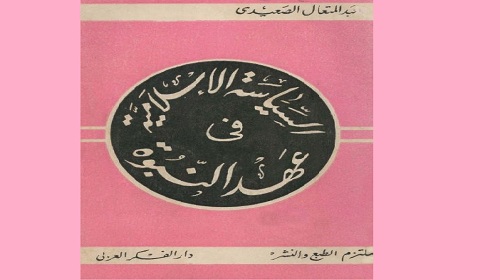 عبد المتعال الصعيدى
السياسة الإسلامية
فى
عهد النبوة
ملتزم الطبع والنشر
دار الفكر العربى